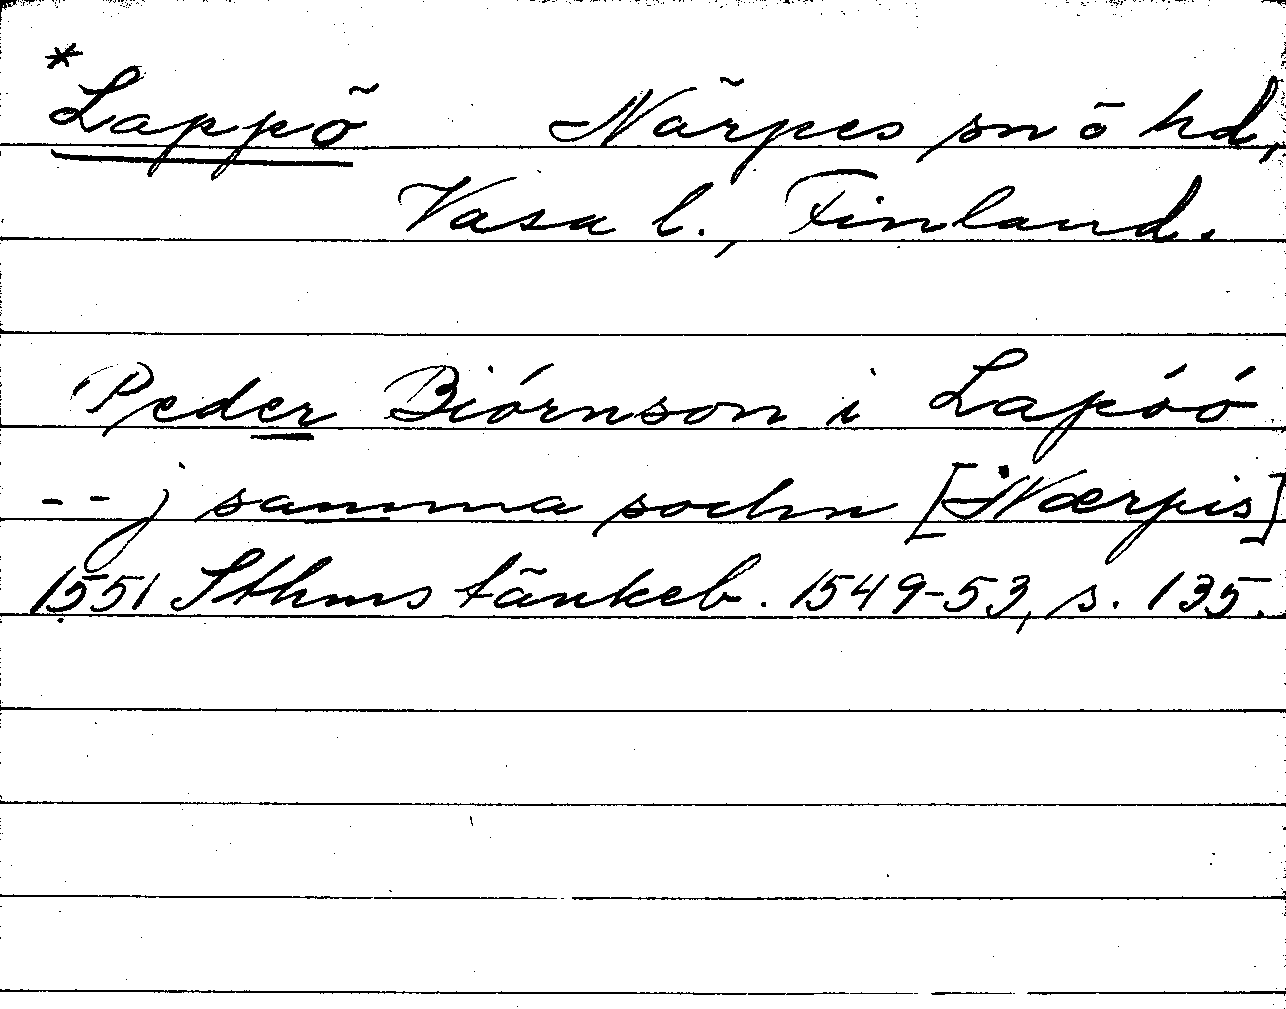 *Lappö Närpes sn ō hd,
Vasa l., Finland.
Peder Biórnson i Lapóó
-- j samma sochn [Nærpis]
1551 Sthms tänkeb. 1549-53, s. 135.